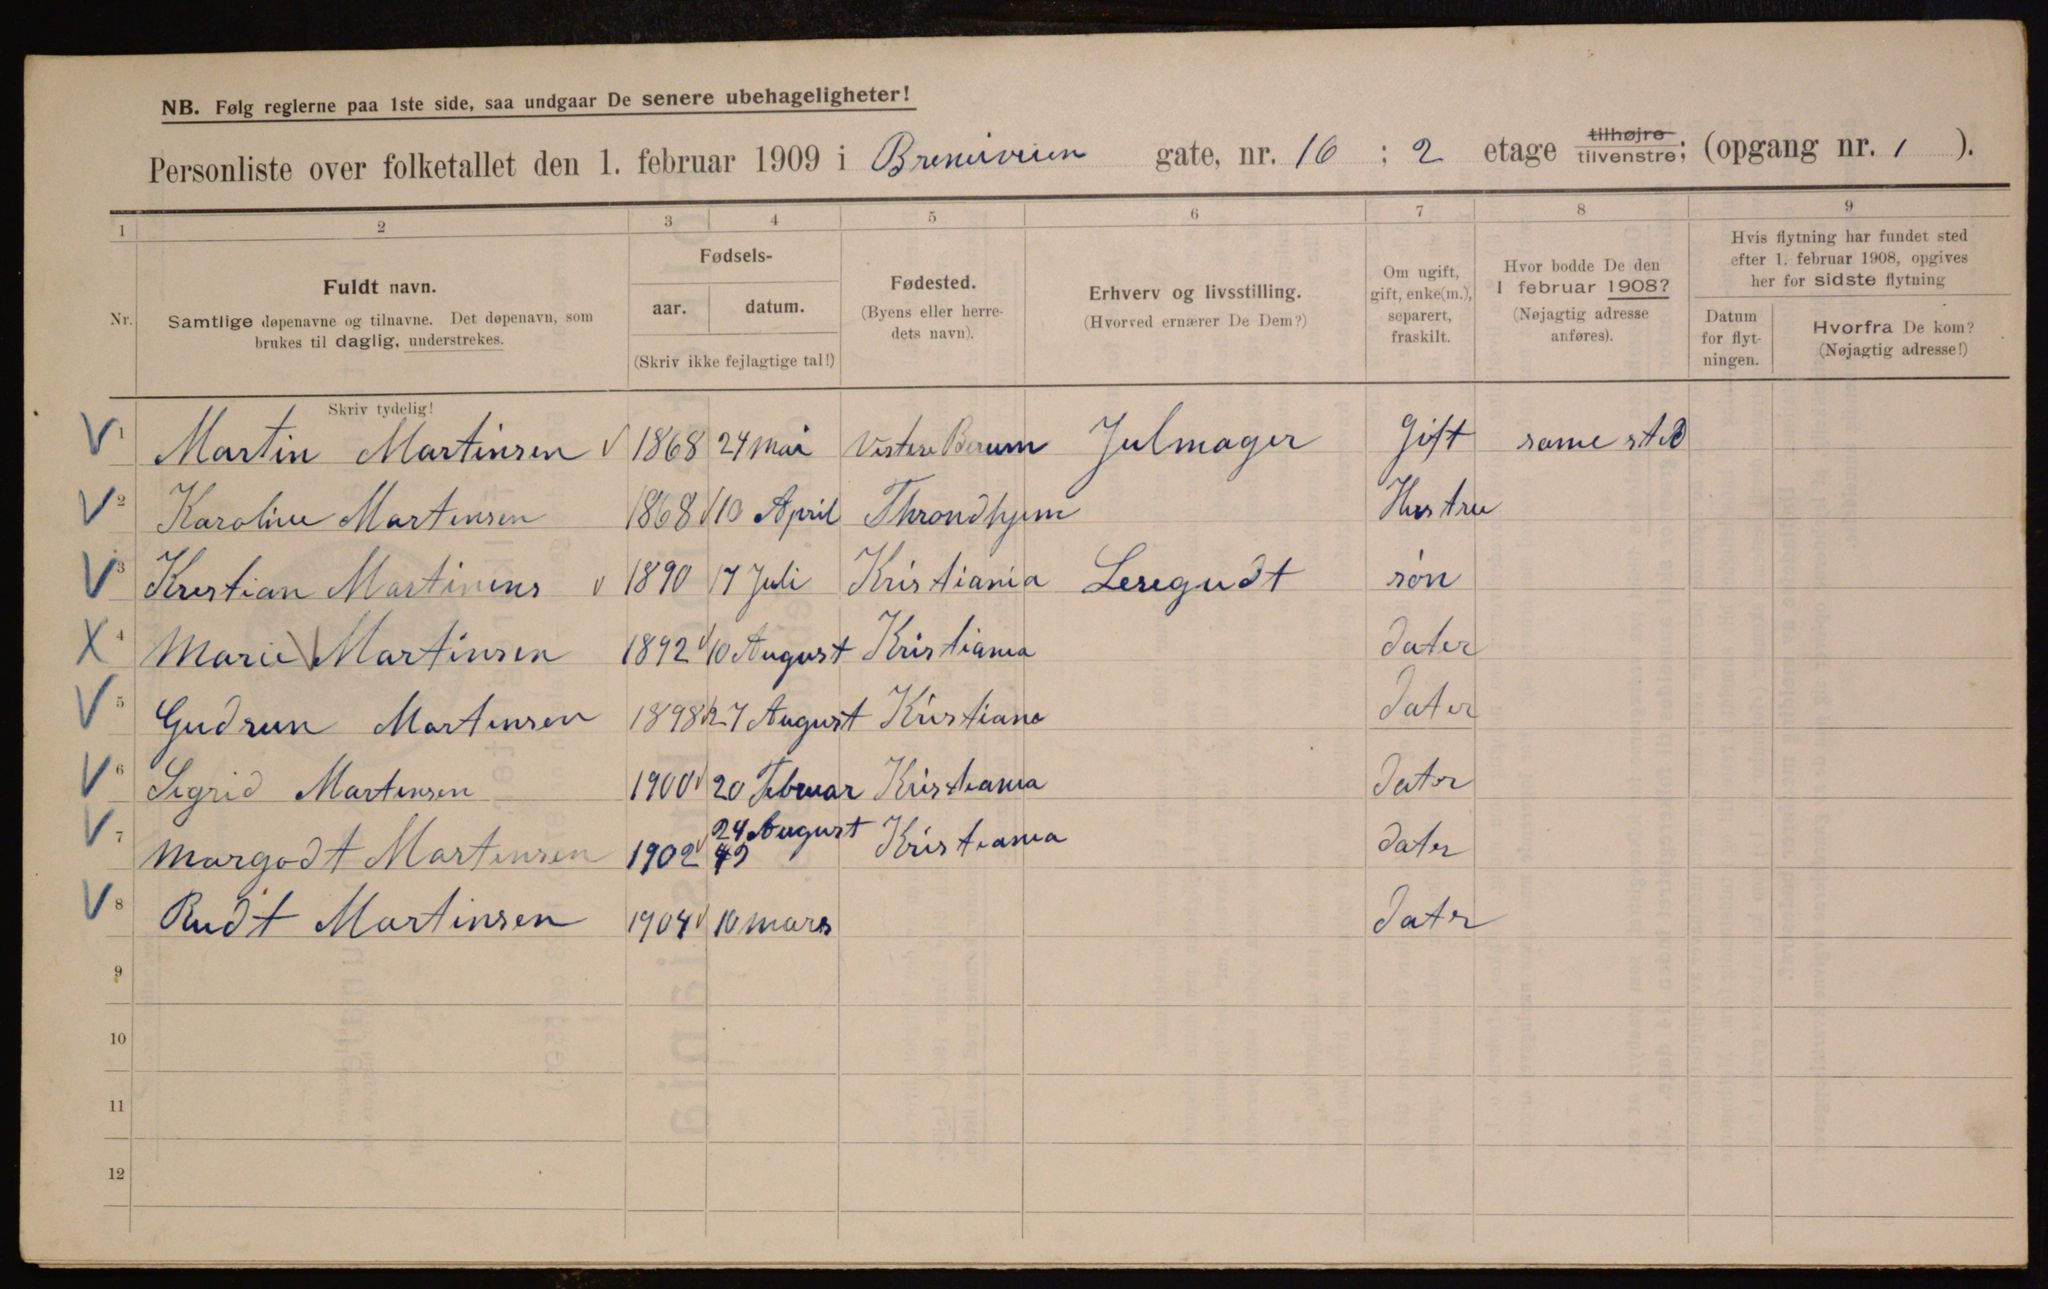 NB. Følg reglerne paa 1ste side, saa undgaar De senere ubehageligheter!
Personliste over folketallet den 1. februar 1909 i Brenneriveien gate, nr. 16 ; 2 etage tilhøjre tilvenstre; (opgang nr. 1 ).
1 2 3 4 5 6 7 8 9
Nr.
Fuldt navn.
Samtlige døpenavne og tilnavne. Det døpenavn, som
brukes til daglig, understrekes.
Skriv tydelig!
Fødsels-
aar. datum.
(Skriv ikke fejlagtige tal!)
Fødested.
(Byens eller herre-
dets navn).
Erhverv og livsstilling.
(Hvorved ernærer De Dem?)
Om ugift,
gift, enke(m.),
separert,
fraskilt.
Hvor bodde De den
1 februar 1908?
(Nøjagtig adresse
anføres).
Hvis flytning har fundet sted
efter 1. februar 1908, opgives
her for sidste flytning
Datum
for flyt-
ningen.
Hvorfra De kom?
(Nøjagtig adresse!)
V 1 Martin Martinsen 1868 24 Mai Vestere Berum Julmager Gift same sted
V 2 Karoline Martensen 1868 10 April Throndhjem Hustru
V 3 Krestian Martinens 1890 17 Juli Kristiania Leregudt søn
X 4 Marie Martinsen 1892 10 August Kristiania dater
V 5 Gudrun Martensen 1898 27 August Kristiana dater
V 6 Sigrid Martensen 1900 20 Februar Kristiania dater
V 7 Margodt Martensen 1902 24 August Kristiania dater
V 8 Rudt Martinsen 1904 10 mars dater
9
10
11
12